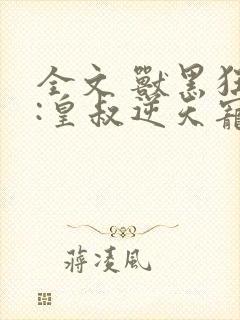 全文 獸黑狂
:皇叔逆天寵
蔣凌風